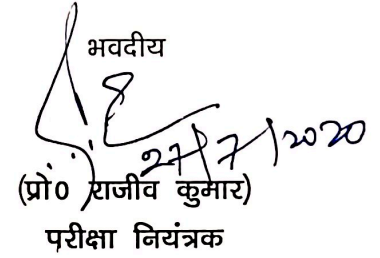 भवदीय
27/7/2020
(प्रो0 राजीव कुमार)
परीक्षा नियंत्रक